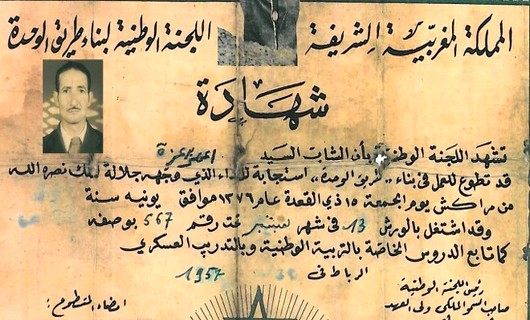 المملكة المغربية الشريفة
اللجنة الوطنية لبناء طريق الوحدة
شهادة
تشهد اللجنة الوطنية بأن الشاب السيد
قد تطوع للعمل في بناء «طريق الوحدة» استجابة للنداء الذي وجهه جلالة الملك نصره الله
من مراكش يوم الجمعة ١٥ ذي القعدة عام ١٣٧٦ موافق يونيه سنة
وقد اشتغل بالورش 13 في شهر شتنبر تحت رقم 567 بوصفه
كما تابع الدروس الخاصة بالتربية الوطنية وبالتدريب العسكري
الرباط في 1957
رئيس اللجنة الوطنية
صاحب السمو الملكي ولي العهد
امضاء المتطوع: